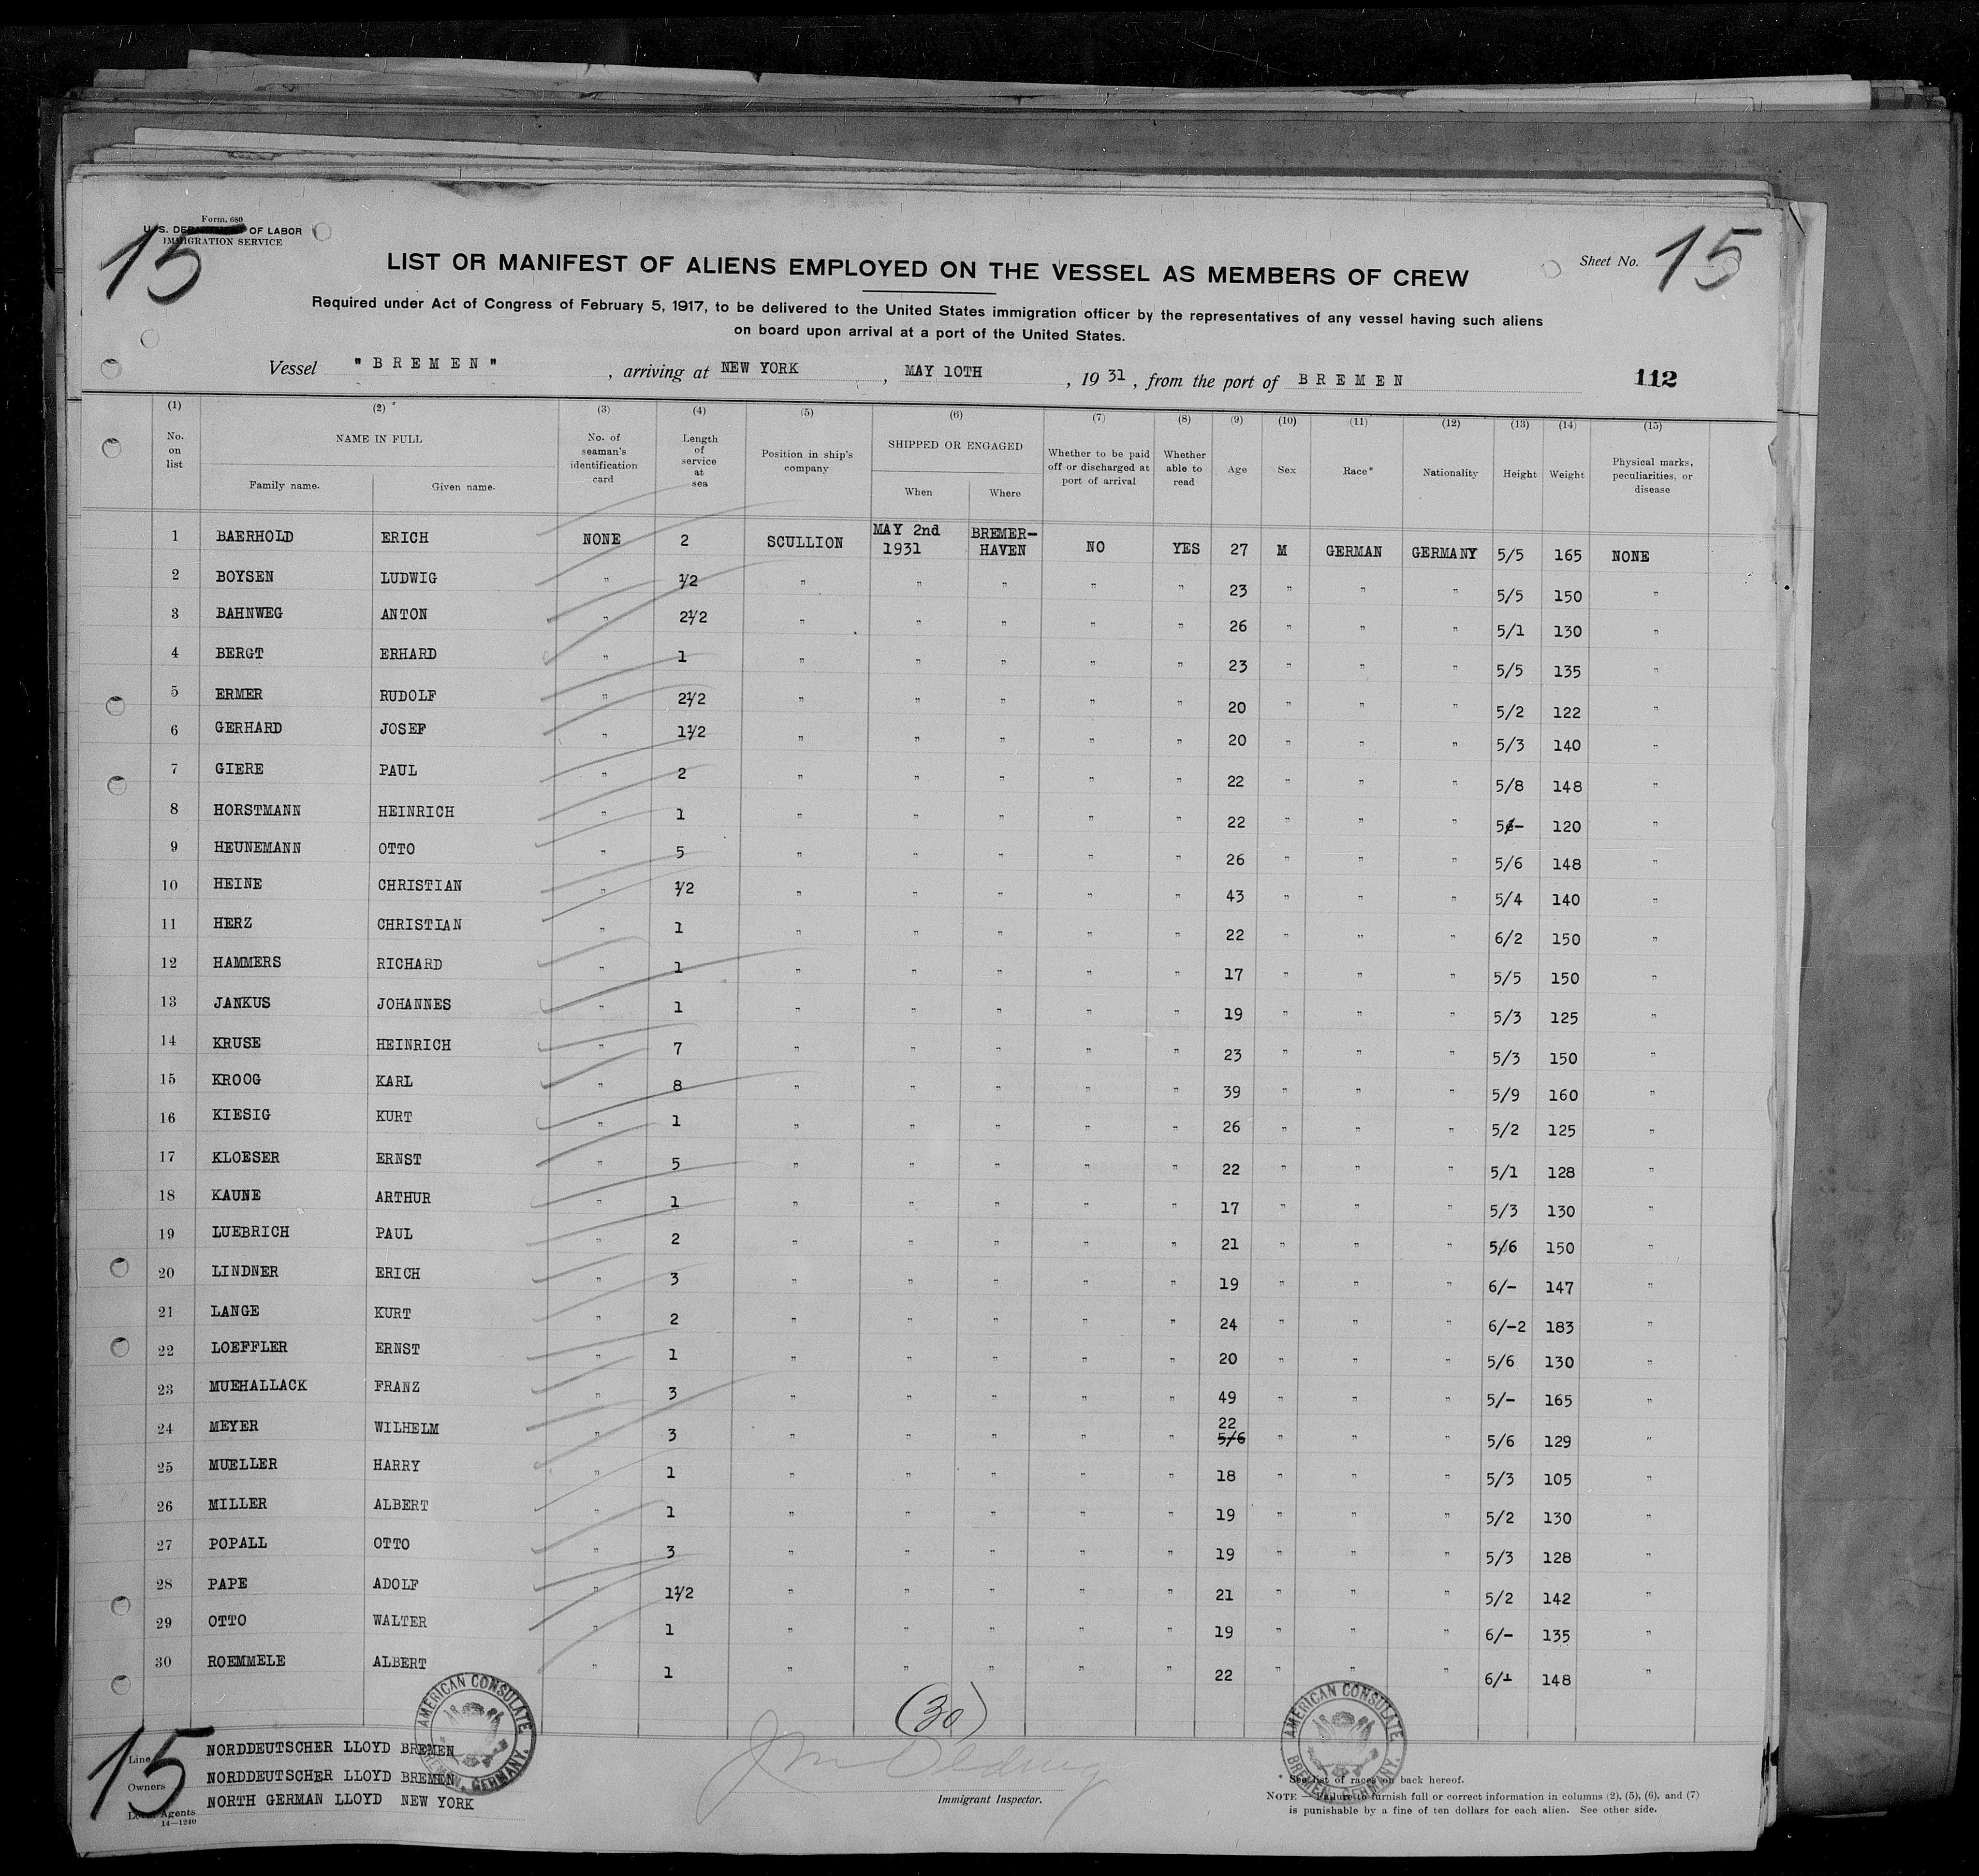 Form. 680
U. S. DEPARTMENT OF LABOR
IMMIGRATION SERVICE
15
Sheet No. 15
LIST OR MANIFEST OF ALIENS EMPLOYED ON THE VESSEL AS MEMBERS OF CREW
Required under Act of Congress of February 5, 1917, to be delivered to the United States immigration officer by the representatives of any vessel having such aliens
on board upon arrival at a port of the United States.
Vessel "BREMEN", arriving at NEW YORK, MAY 10TH, 1931, from the port of BREMEN 112
(1) (2) (3) (4) (5) (6) (7) (8) (9) (10) (11) (12) (13) (14) (15)
No. on list NAME IN FULL Family name. Given name. No. of seaman's identification card Length of service at sea Position in ship's company SHIPPED OR ENGAGED When Where Whether to be paid off or discharged at port of arrival Whether able to read Age Sex Race* Nationality Height Weight Physical marks, peculiarities, or disease
1 BAERHOLD ERICH NONE 2 SCULLION MAY 2nd 1931 BREMER-HAVEN NO YES 27 M GERMAN GERMANY 5/5 165 NONE
2 BOYSEN LUDWIG " 1/2 " " " " " 23 " " " 5/5 150 "
3 BAHNWEG ANTON " 21/2 " " " " " 26 " " " 5/1 130 "
4 BERGT ERHARD " 1 " " " " " 23 " " " 5/5 135 "
5 ERMER RUDOLF " 21/2 " " " " " 20 " " " 5/2 122 "
6 GERHARD JOSEF " 11/2 " " " " " 20 " " " 5/3 140 "
7 GIERE PAUL " 2 " " " " " 22 " " " 5/8 148 "
8 HORSTMANN HEINRICH " 1 " " " " " 22 " " " 5/- 120 "
9 HEUNEMANN OTTO " 5 " " " " " 26 " " " 5/6 148 "
10 HEINE CHRISTIAN " 1/2 " " " " " 43 " " " 5/4 140 "
11 HERZ CHRISTIAN " 1 " " " " " 22 " " " 6/2 150 "
12 HAMMERS RICHARD " 1 " " " " " 17 " " " 5/5 150 "
13 JANKUS JOHANNES " 1 " " " " " 19 " " " 5/3 125 "
14 KRUSE HEINRICH " 7 " " " " " 23 " " " 5/3 150 "
15 KROOG KARL " 8 " " " " " 39 " " " 5/9 160 "
16 KIESIG KURT " 1 " " " " " 26 " " " 5/2 125 "
17 KLOESER ERNST " 5 " " " " " 22 " " " 5/1 128 "
18 KAUNE ARTHUR " 1 " " " " " 17 " " " 5/3 130 "
19 LUEBRICH PAUL " 2 " " " " " 21 " " " 5/6 150 "
20 LINDNER ERICH " 3 " " " " " 19 " " " 6/- 147 "
21 LANGE KURT " 2 " " " " " 24 " " " 6/-2 183 "
22 LOEFFLER ERNST " 1 " " " " " 20 " " " 5/6 130 "
23 MUEHALLACK FRANZ " 3 " " " " " 49 " " " 5/- 165 "
24 MEYER WILHELM " 3 " " " " " 22 5/6 " " " 5/6 129 "
25 MUELLER HARRY " 1 " " " " " 18 " " " 5/3 105 "
26 MILLER ALBERT " 1 " " " " " 19 " " " 5/2 130 "
27 POPALL OTTO " 3 " " " " " 19 " " " 5/3 128 "
28 PAPE ADOLF " 11/2 " " " " " 21 " " " 5/2 142 "
29 OTTO WALTER " 1 " " " " " 19 " " " 6/- 135 "
30 ROEMMELE ALBERT " 1 " " " " " 22 " " " 6/1 148 "
(30)
15
Line NORDDEUTSCHER LLOYD BREMEN
Owners NORDDEUTSCHER LLOYD BREMEN
Local Agents NORTH GERMAN LLOYD NEW YORK
14—1240
AMERICAN CONSULATE
BREMEN, GERMANY.
Immigrant Inspector.
AMERICAN CONSULATE
BREMEN, GERMANY.
* See list of races on back hereof.
NOTE — Failure to furnish full or correct information in columns (2), (5), (6), and (7)
is punishable by a fine of ten dollars for each alien. See other side.